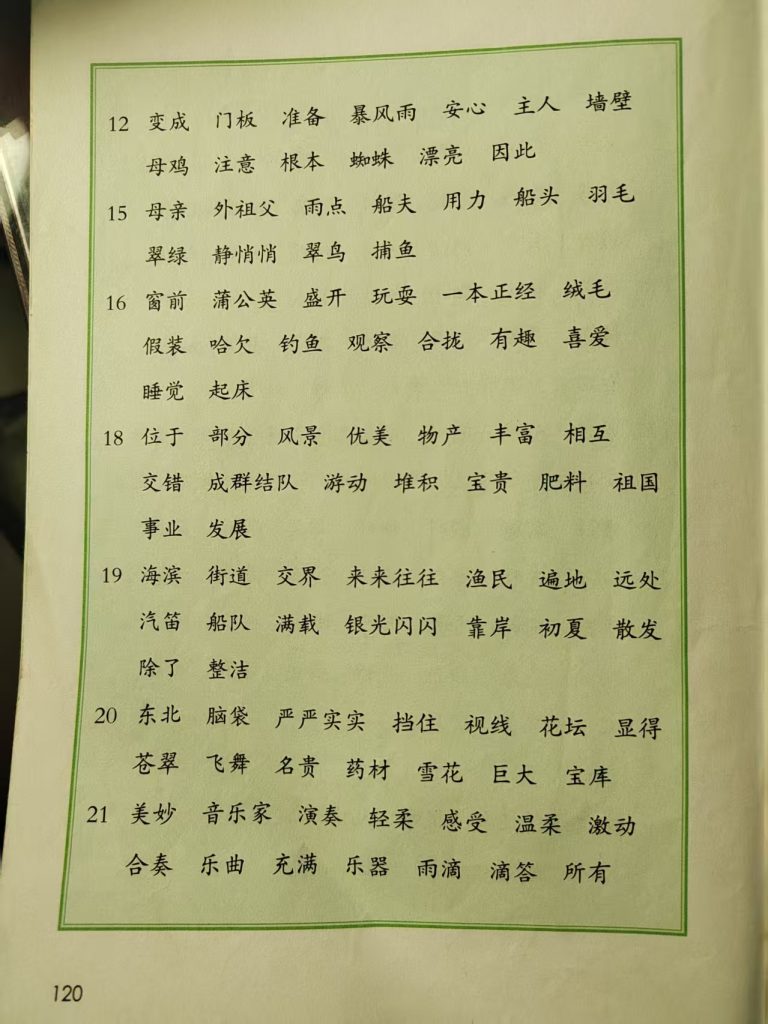 12 变成 门板 准备 暴风雨 安心 主人 墙壁
母鸡 注意 根本 蜘蛛 漂亮 因此
15 母亲 外祖父 雨点 船夫 用力 船头 羽毛
翠绿 静悄悄 翠鸟 捕鱼
16 窗前 蒲公英 盛开 玩耍 一本正经 绒毛
假装 哈欠 钓鱼 观察 合拢 有趣 喜爱
睡觉 起床
18 位于 部分 风景 优美 物产 丰富 相互
交错 成群结队 游动 堆积 宝贵 肥料 祖国
事业 发展
19 海滨 街道 交界 来来往往 渔民 遍地 远处
汽笛 船队 满载 银光闪闪 靠岸 初夏 散发
除了 整洁
20 东北 脑袋 严严实实 挡住 视线 花坛 显得
苍翠 飞舞 名贵 药材 雪花 巨大 宝库
21 美妙 音乐家 演奏 轻柔 感受 温柔 激动
合奏 乐曲 充满 乐器 雨滴 滴答 所有
120